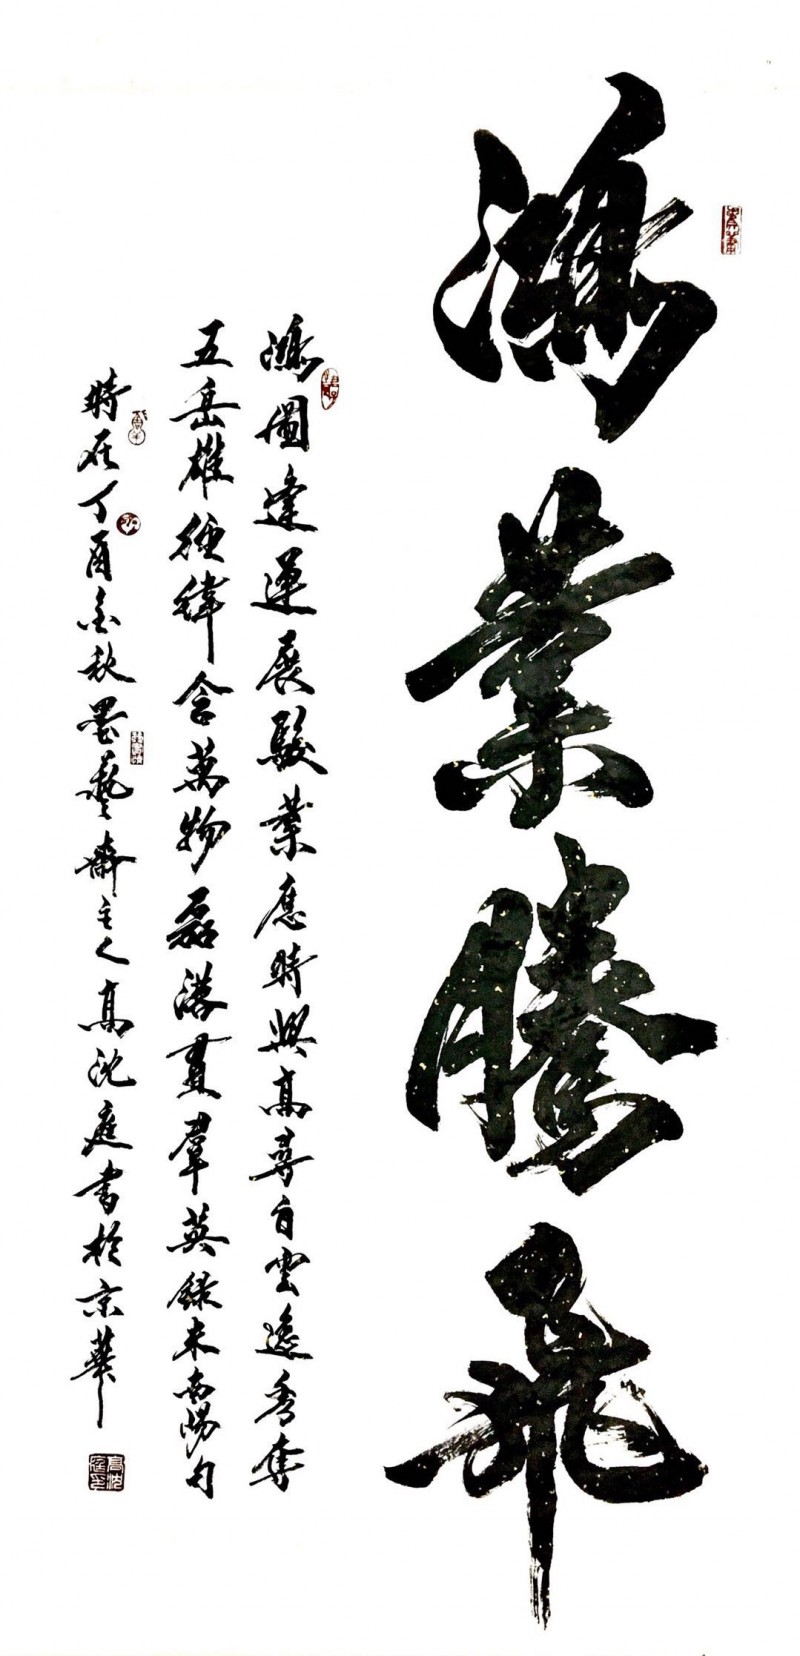 鴻業騰飛
鴻圖達運展駿業應時興高尋白雲逸秀奪
五岳雄經緯含萬物磊落貫群英錄朱南陽句
時在丁酉金秋墨藝齋主人高沈庭書於京華